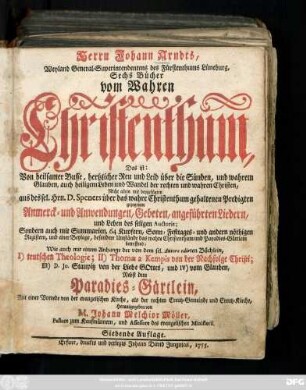 Herrn Johann Arndts,
Weyland General-Superintendentens des Fürstenthums Lüneburg,
Sechs Bücher
vom Wahren
Christenthum,
Das ist:
Von heilsamer Busse, hertzlicher Reu und Leid über die Sünden, und wahrem
Glauben, auch heiligem Leben und Wandel der rechten und wahren Christen,
aus des sel. Hrn. D. Speners über das wahre Christenthum gehaltenen Predigten
Anmerck- und Anwendungen, Gebeten, angeführten Liedern,
und Leben des seligen Auctoris:
Sondern auch mit Summarien, 64. Kupfern, Sonn- Festtages- und andern nöthigen
Registern, und einer Beylage, besondere Umstände des wahren Christenthum und Paradies-Gärtlein
betreffend,
Wie auch mit einem Anhange
I) teutschen Theologie; II) Thomæ a Kempis von der Nachfolge Christi;
III) D. Jo. Staupitz von der Liebe GOttes, und IV) vom Glauben,
Nebst dem
Paradies-Gärtlein,
Mit einer Vorrede von der evangelischen Kirche, als der rechten Creutz-Gemeinde und Creutz-Kirche,
herausgegeben von
M. Johann Melchior Möller,
Pastore zun Kaufmännern, und Assessore des evangelischen Ministerii.
Siebende Auflage.
Erfurt, druckts und verlegts Johann David Jungnicol,